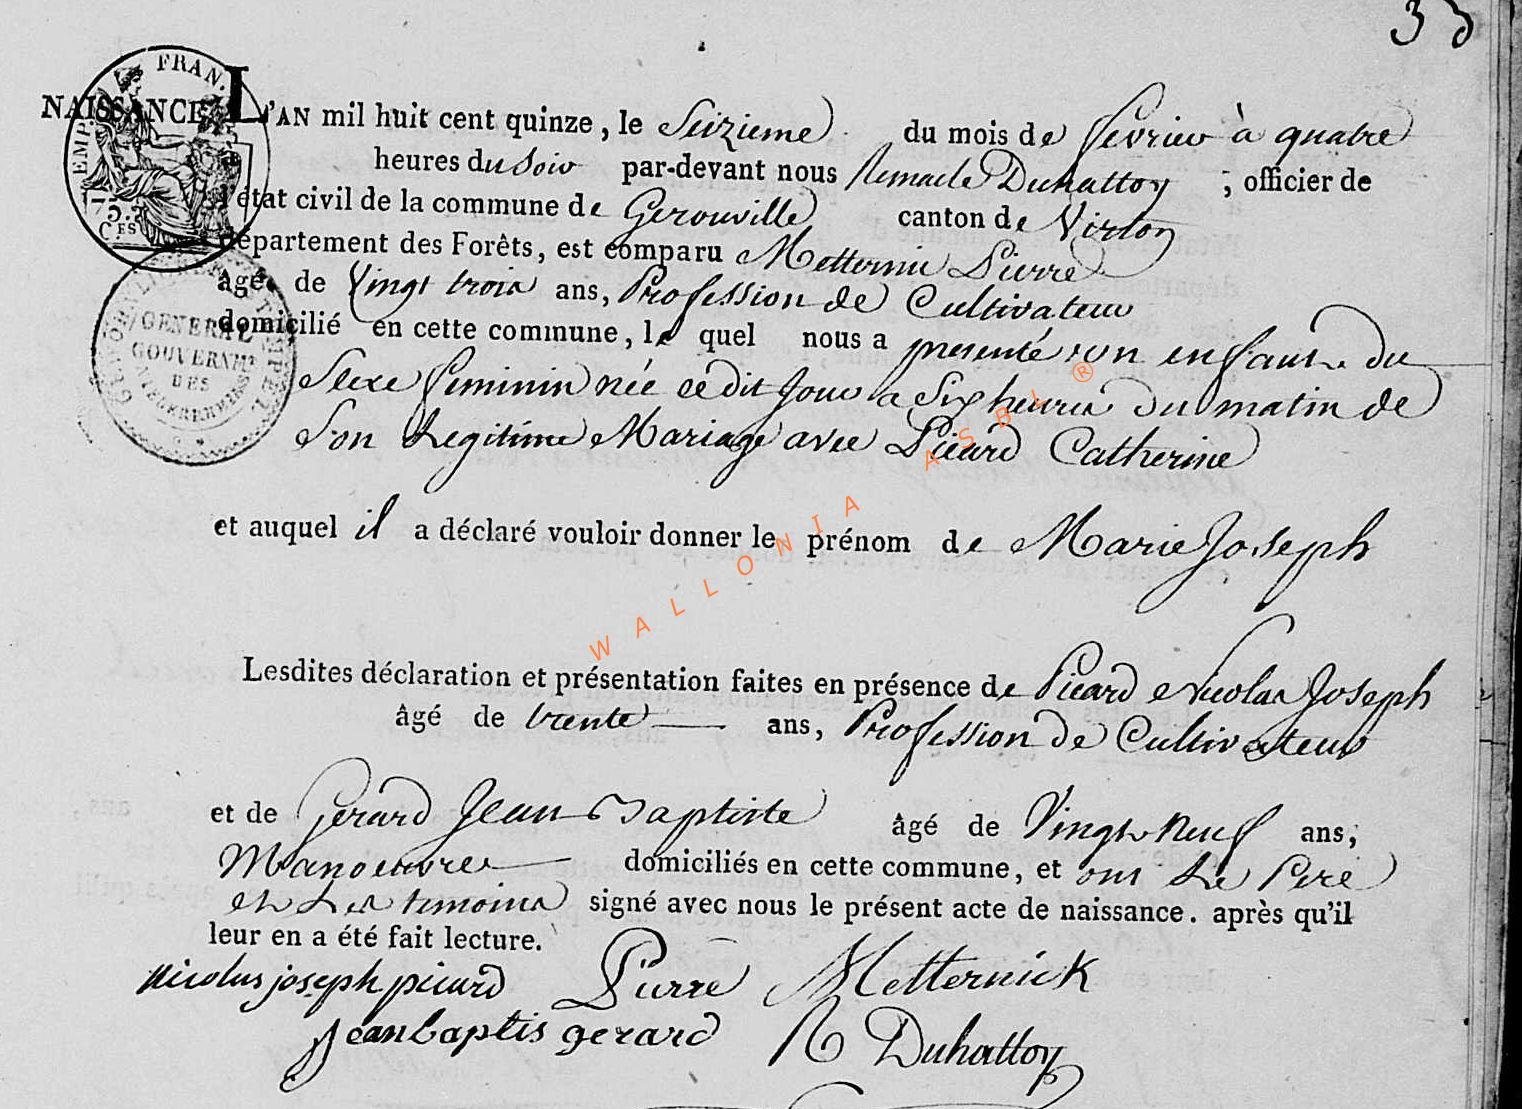 33
NAISSANCE L'AN mil huit cent quinze, le Seizieme du mois de fevrier à quatre
heures du Soir par-devant nous Remacle Duhattoy, officier de
l'état civil de la commune de Gerouville canton de Virton
département des Forêts, est comparu Metternic Pierre
âgé de Vingt trois ans, Profession de Cultivateur
domicilié en cette commune, le quel nous a presenté un enfant du
Sexe feminin née ce dit Jour a Six heures du matin de
Son Legitime Mariage avec Picard Catherine
et auquel il a déclaré vouloir donner le prénom de Marie Joseph
Lesdites déclaration et présentation faites en présence de Picard Nicolas Joseph
âgé de trente ans, Profession de Cultivateur
et de Gerard Jean Baptiste âgé de Vingt Neuf ans,
Manoeuvre domiciliés en cette commune, et ont Le Pere
et Les temoins signé avec nous le présent acte de naissance. après qu'il
leur en a été fait lecture.
Nicolas joseph picard Pierre Metternick
jean baptis gerard R Duhattoy
EMP. FRAN.
75.
C.ES
GENERAL
GOUVERNMT
DES
WALLONIA ASBL ®